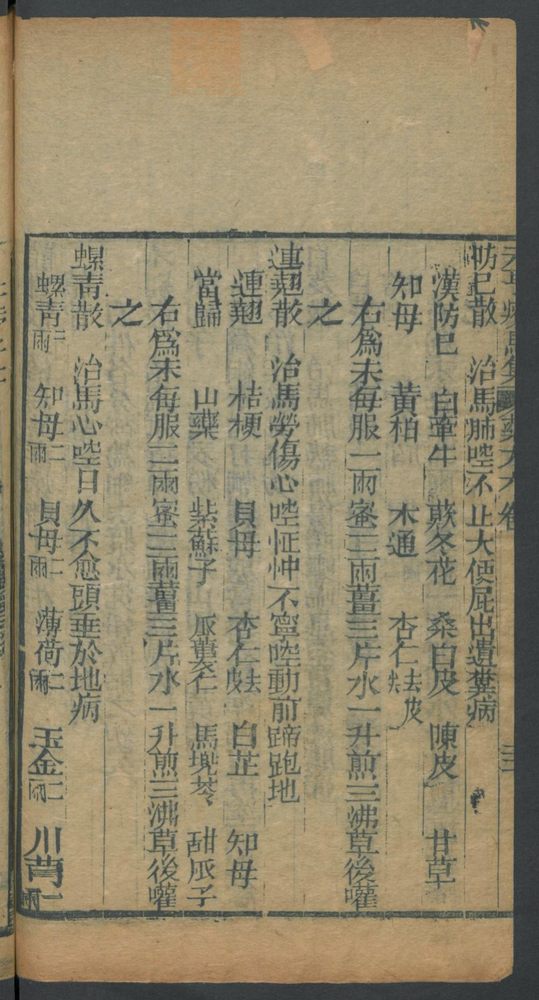 元亨療馬集 藥方 卷 三
防已散 治馬肺啌不止大便屁出遺糞病
漢防已 白牽牛 欵冬花 桑白皮 陳皮 甘草
知母 黄柏 木通 杏仁去皮尖
右爲末每服一兩蜜三兩薑三片水一升煎三沸草後嚾
之
連翹散 治馬勞傷心啌怔忡不寧啌動前蹄跑地
連翹 桔梗 貝母 杏仁去皮 白芷 知母
當歸 山藥 紫蘇子 瓜蔞仁 馬兠苓 甜瓜子
右爲末每服二兩蜜二兩薑三片水一升煎三沸草後嚾
之
螺青散 治馬心啌日久不愈頭垂於地病
螺青二兩 知母二兩 貝母二兩 薄荷二兩 玉金二兩 川芎一兩